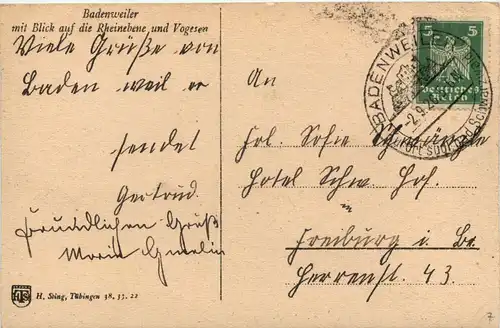 Badenweiler
mit Blick auf die Rheinebene und Vogesen
Viele Grüße von
Badenweiler
sendet
Gertrud.
Freundlichen Gruß
Maria Gmelin
H. Sting, Tübingen 38. 15. 22
An
Frl. Sofie
Hotel Schw. Hof.
in
Freiburg i. Br.
Herrenstr. 43.
5 5
Deutsches
Reich
BADENWEILER
2.9.2
7